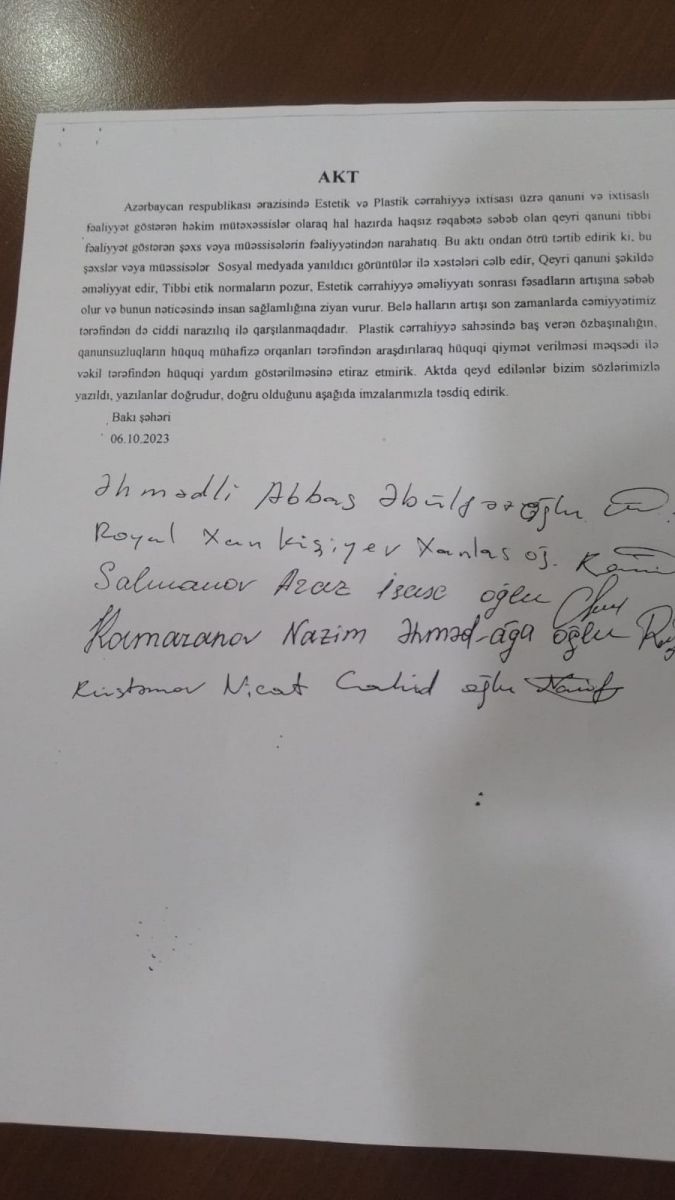 AKT
Azərbaycan respublikası ərazisində Estetik və Plastik cərrahiyyə ixtisası üzrə qanuni və ixtisaslı
fəaliyyət göstərən həkim mütəxəssislər olaraq hal hazırda haqsız rəqabətə səbəb olan qeyri qanuni tibbi
fəaliyyət göstərən şəxs vəya müəssisələrin fəaliyyətindən narahatıq. Bu aktı ondan ötrü tərtib edirik ki, bu
şəxslər vəya müəssisələr Sosyal medyada yanıldıcı görüntülər ilə xəstələri cəlb edir, Qeyri qanuni şəkildə
əməliyyat edir, Tibbi etik normaların pozur, Estetik cərrahiyyə əməliyyatı sonrası fəsadların artışına səbəb
olur və bunun nəticəsində insan sağlamlığına ziyan vurur. Belə halların artışı son zamanlarda cəmiyyətimiz
tərəfindən də ciddi narazılıq ilə qarşılanmaqdadır. Plastik cərrahiyyə sahəsində baş verən özbaşınalığın,
qanunsuzluqların hüquq mühafizə orqanları tərəfindən araşdırılaraq hüquqi qiymət verilməsi məqsədi ilə
vəkil tərəfindən hüquqi yardım göstərilməsinə etiraz etmirik. Aktda qeyd edilənlər bizim sözlərimizlə
yazıldı, yazılanlar doğrudur, doğru olduğunu aşağıda imzalarımızla təsdiq edirik.
Bakı şəhəri
06.10.2023
Əhmədli Abbas oğlu
Royal Xankişiyev Xanlas oğ.
Salmanov Araz oğlu
Kamaranov Nazim Əhməd-ağa oğlu
Rüstəmov Nicat Cahid oğlu